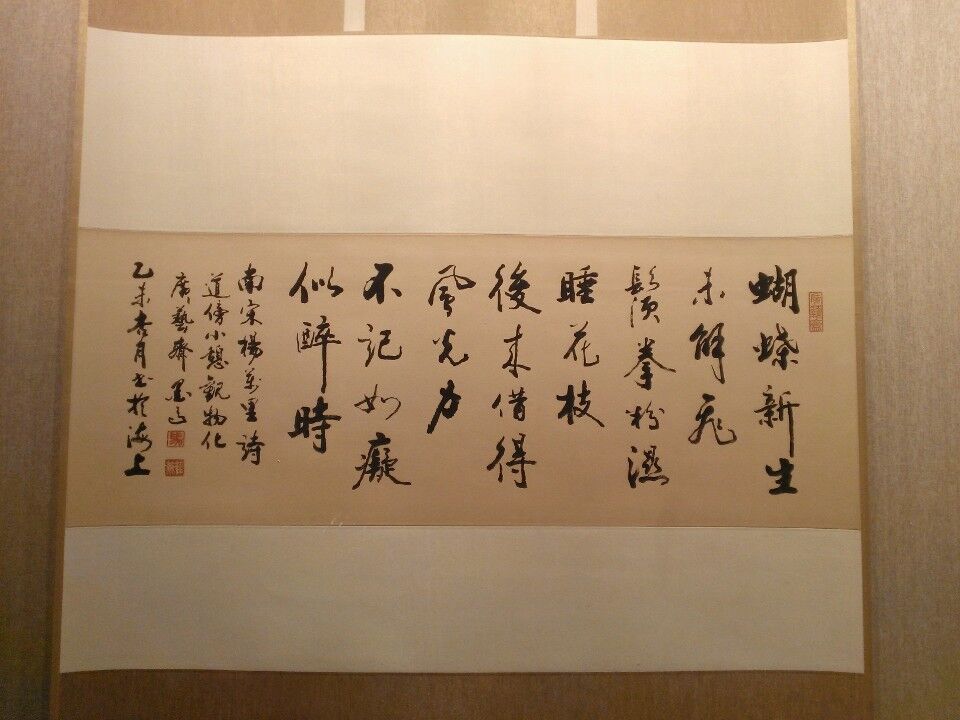 廣藝齋
蝴蝶新生
未解飛
鬚拳粉濕
睡花枝
後來借得
風光力
不記如癡
似醉時
南宋楊萬里詩
道傍小憩觀物化
廣藝齋
乙未月书於海上